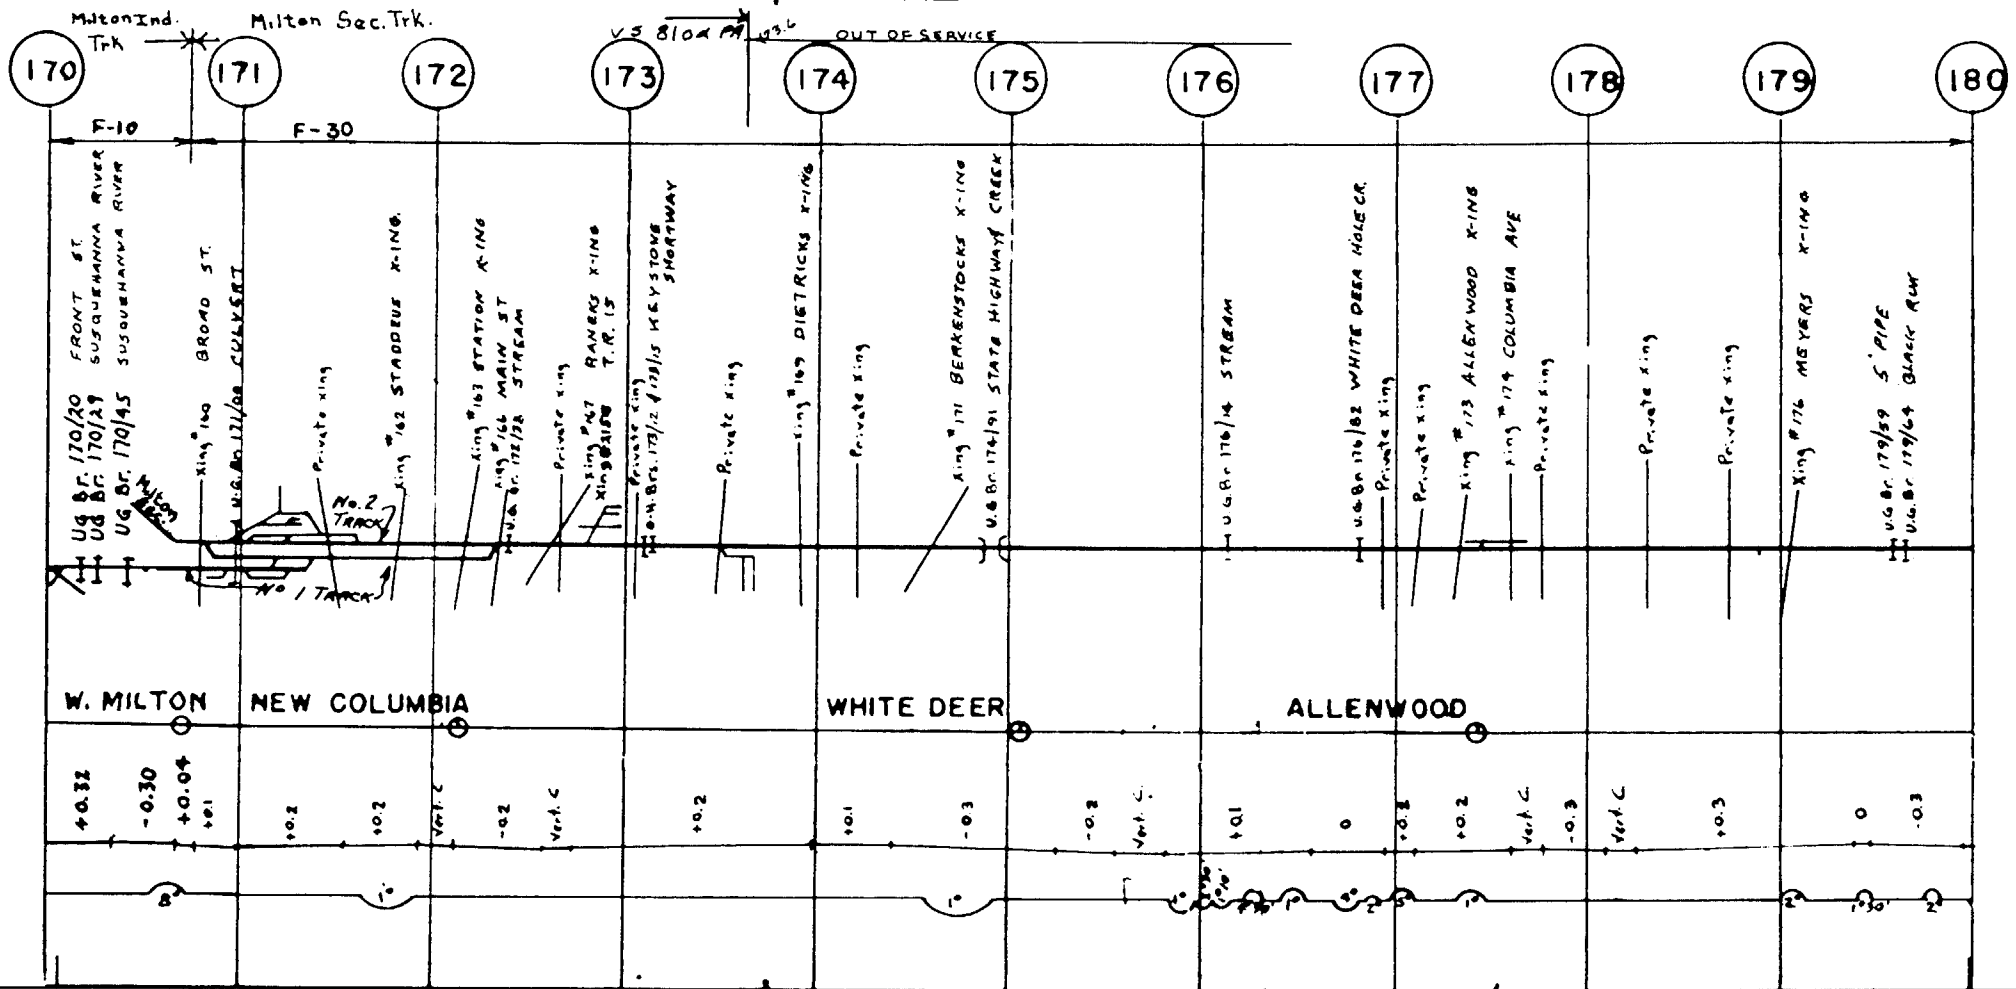 Milton Ind.
Trk
Milton Sec. Trk.
OUT OF SERVICE
170
171
172
173
174
175
176
177
178
179
180
F-10
F-30
UG Br. 170/20 FRONT ST.
UG Br. 170/29 SUSQUEHANNA RIVER
UG Br. 170/45 SUSQUEHANNA RIVER
Milton
Xing #160 BROAD ST.
CULVERT
Private Xing
Xing #162 STADDEUS X-ING.
Xing #163 STATION X-ING
Xing #166 MAIN ST
STREAM
Private Xing
Xing #167 RANERS X-ING
T.R. 15
Private Xing
O.H. Brs. 173/12 & 173/15 KEYSTONE
SHORTWAY
Private Xing
Xing #169 DIETRICKS X-ING
Private Xing
Xing #171 BERKENSTOCKS X-ING
U.G. Br. 174/91 STATE HIGHWAY & CREEK
U.G. Br. 176/14 STREAM
U.G. Br. 176/82 WHITE DEER HOLE CR.
Private Xing
Private Xing
Xing #173 ALLENWOOD X-ING
Xing #174 COLUMBIA AVE
Private Xing
Private Xing
Private Xing
Xing #176 MEYERS X-ING
U.G. Br. 179/59 5' PIPE
U.G. Br. 179/64 BLACK RUN
No. 2
TRACK
No 1 TRACK
W. MILTON
NEW COLUMBIA
WHITE DEER
ALLENWOOD
+0.32
-0.30
+0.04
+0.1
+0.2
+0.2
Vert. C
-0.2
Vert. C
+0.2
+0.1
-0.3
-0.2
Vert. C.
+0.1
0
+0.2
+0.2
Vert. C.
-0.3
Vert. C
+0.3
0
-0.3
8°
1°
1°
1°
1°
4°
2°
5°
1°
2°
1°30'
2°